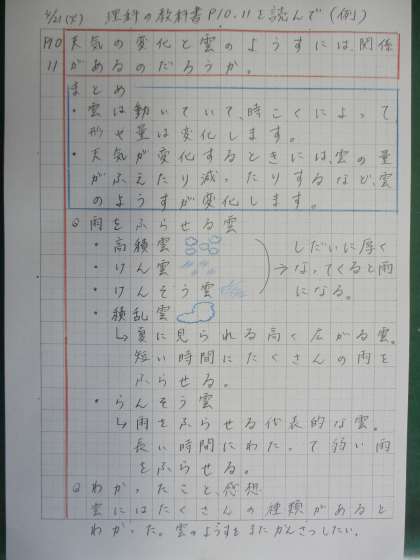 理科の教科書P10.11を読んで(例)
P10 天気の変化と雲のようすには、関係
11 があるのだろうか。
まとめ
・雲は動いていて、時こくによって
形や量は変化します。
・天気が変化するときには、雲の量
がふえたり減ったりするなど、雲
のようすが変化します。
◎雨をふらせる雲
・高積雲 しだいに厚く
・けん雲 →なってくると雨
・けんそう雲 になる。
・積乱雲
↳夏に見られる高く広がる雲。
短い時間にたくさんの雨を
ふらせる。
・らんそう雲
↳雨をふらせる代表的な雲。
長い時間にわたって弱い雨
をふらせる。
◎わかったこと、感想
雲にはたくさんの種類があると
わかった。雲のようすをまたかんさつしたい。